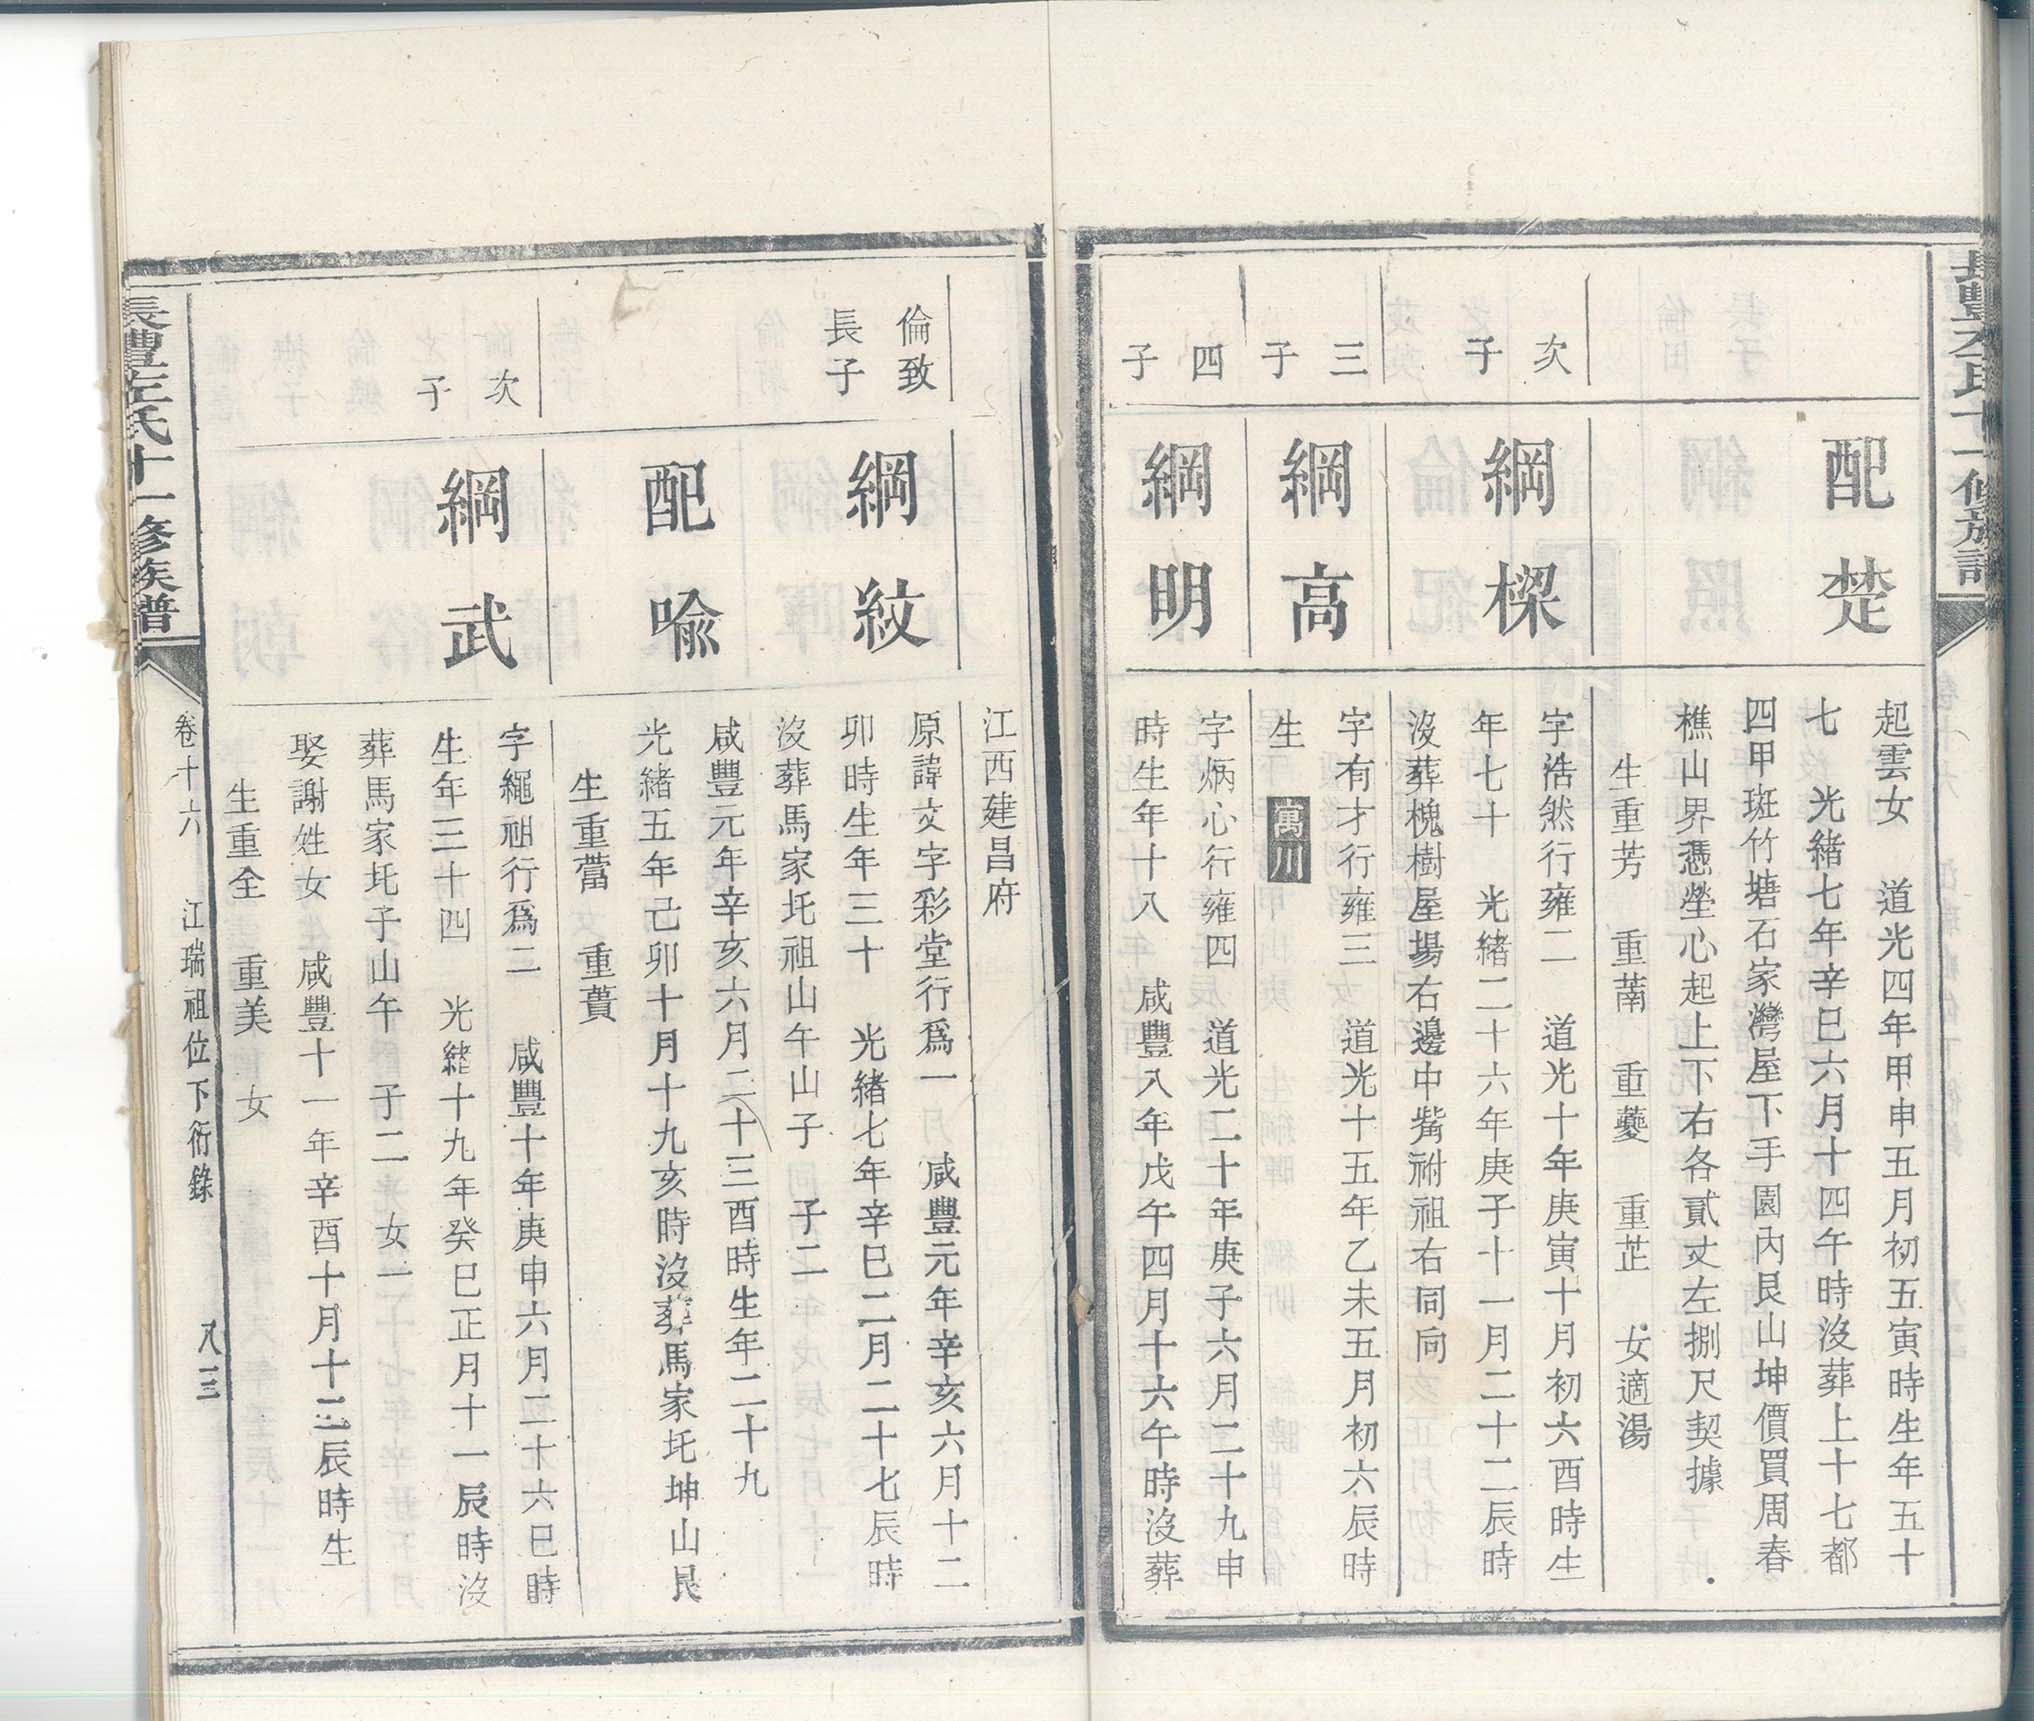 配楚
起雲女　道光四年甲申五月初五寅時生年五十
七　光緒七年辛巳六月十四午時沒葬上十七都
四甲斑竹塘石家灣屋下手園內艮山坤價買周春
樵山界憑塋心起上下右各貳丈左捌尺契據
生重芳　重萳　重虁　重芷　女適湯
次子
綱樑
字浩然行雍二　道光十年庚寅十月初六酉時生
年七十　光緒二十六年庚子十一月二十二辰時
沒葬槐樹屋場右邊中觜祔祖右同向
三子
綱高
字有才行雍三　道光十五年乙未五月初六辰時
生　寓川
四子
綱明
字炳心行雍四　道光二十年庚子六月二十九申
時生年十八　咸豐八年戊午四月十六午時沒葬
江西建昌府
倫致
長子
綱紋
原諱文字彩堂行爲一　咸豐元年辛亥六月十二
卯時生年三十　光緒七年辛巳二月二十七辰時
沒葬馬家圫祖山午山子　子二
配喩
咸豐元年辛亥六月二十三酉時生年二十九
光緒五年己卯十月十九亥時沒葬馬家圫坤山艮
生重蕾　重蕡
次子
綱武
字繩祖行爲二　咸豐十年庚申六月二十六巳時
生年三十四　光緒十九年癸巳正月十一辰時沒
葬馬家圫子山午　子二　女一
娶謝姓女　咸豐十一年辛酉十月十二辰時生
生重全　重美　女
長豐左氏十一修族譜
卷十六　江瑞祖位下衍錄　八三